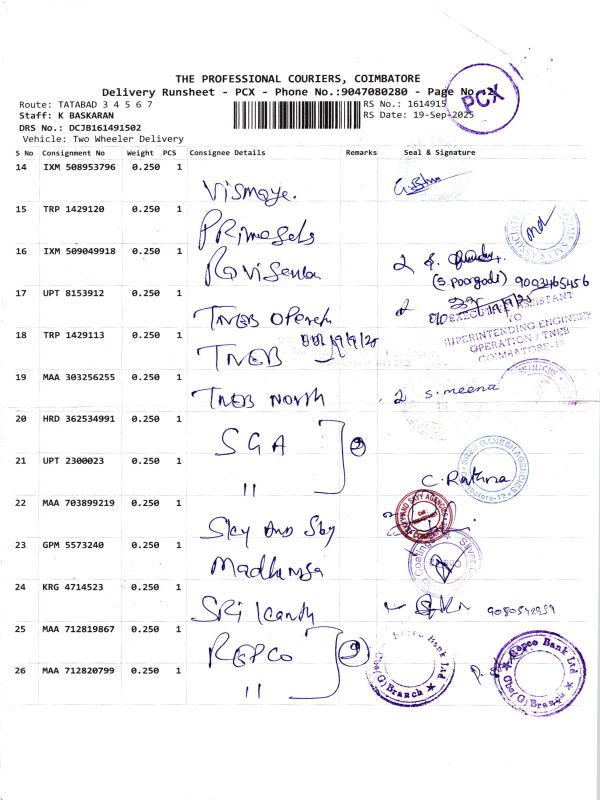 THE PROFESSIONAL COURIERS, COIMBATORE
Delivery Runsheet - PCX - Phone No.:9047080280 - Page No.:2
PCX
Route: TATABAD 3 4 5 6 7 RS No.: 1614915
Staff: K BASKARAN RS Date: 19-Sep-2025
DRS No.: DCJB161491502
Vehicle: Two Wheeler Delivery
S No Consignment No Weight PCS Consignee Details Remarks Seal & Signature
14 IXM 508953796 0.250 1
15 TRP 1429120 0.250 1
16 IXM 509049918 0.250 1
(S. Poorgodi) 9003465456
17 UPT 8153912 0.250 1
TNEB
EXECUTIVE ASSISTANT
TO
SUPERINTENDING ENGINEER
OPERATION / TNEB
COIMBATORE-12
18 TRP 1429113 0.250 1
19/9/25
TNEB
19 MAA 303256255 0.250 1
TNEB North S. meena
20 HRD 362534991 0.250 1
SGA 2
21 UPT 2300023 0.250 1
" C. Rathna
22 MAA 703899219 0.250 1
Sky And Sky
23 GPM 5573240 0.250 1
24 KRG 4714523 0.250 1
SRi Kandh
25 MAA 712819867 0.250 1
REPCO 2
Repco Bank Ltd
Cbe(G) Branch
26 MAA 712820799 0.250 1
"
Repco Bank Ltd
Cbe(G) Branch